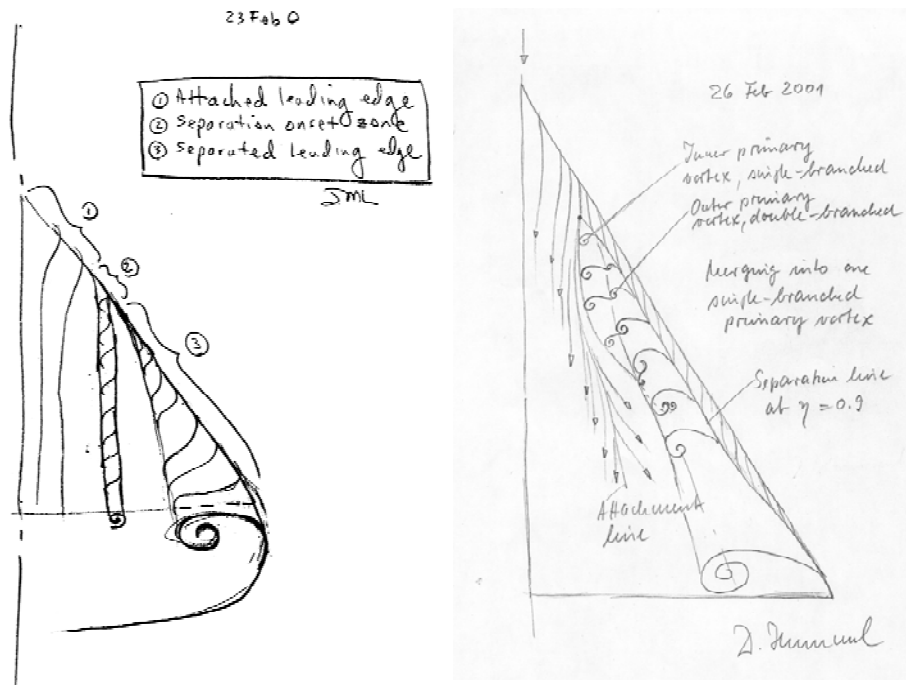 23 Feb 0
① Attached leading edge
② Separation onset zone
③ Separated leading edge
JML
①
②
③
26 Feb 2001
Inner primary
vortex, single-branched
Outer primary
vortex, double-branched
Merging into one
single-branched
primary vortex
Separation line
at η = 0.9
Attachment
line
D. Hummel